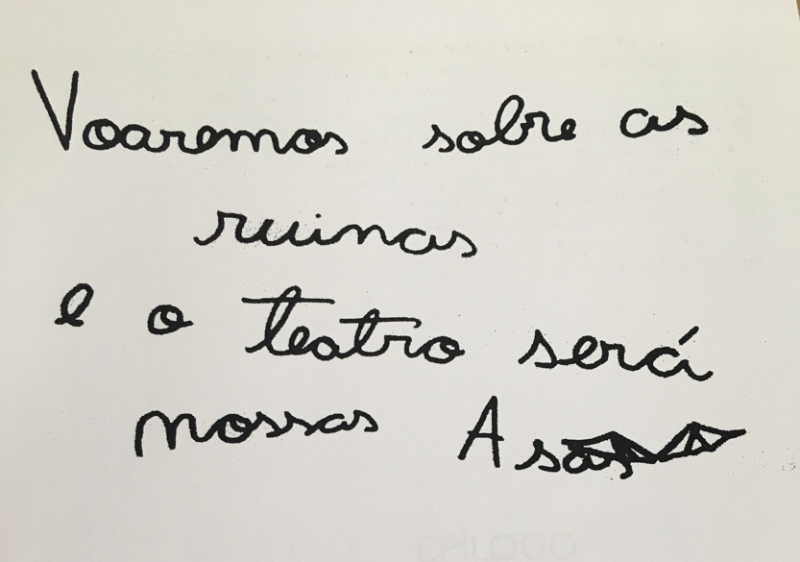 Voaremos sobre as
ruinas
e o teatro será
nossas Asas
EPÍLOGO